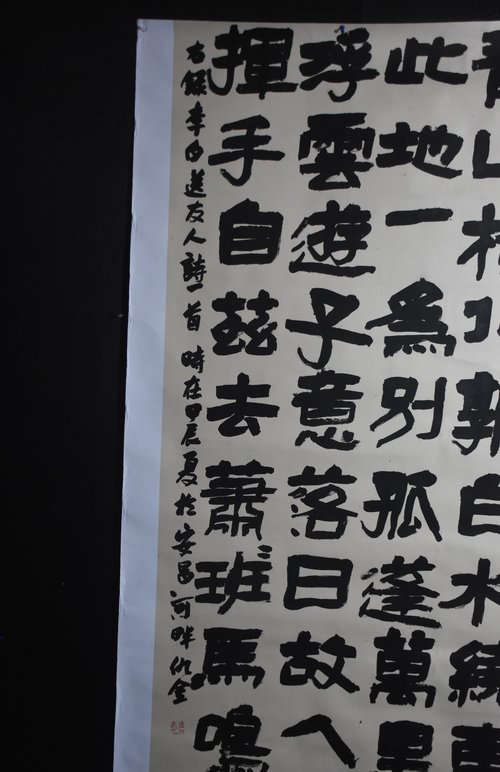 青山橫北郭白水繞東
此地一為別孤蓬萬里
浮雲遊子意落日故人
揮手自茲去蕭〻班馬鳴
右錄李白送友人詩一首 時在甲辰夏於安昌河畔